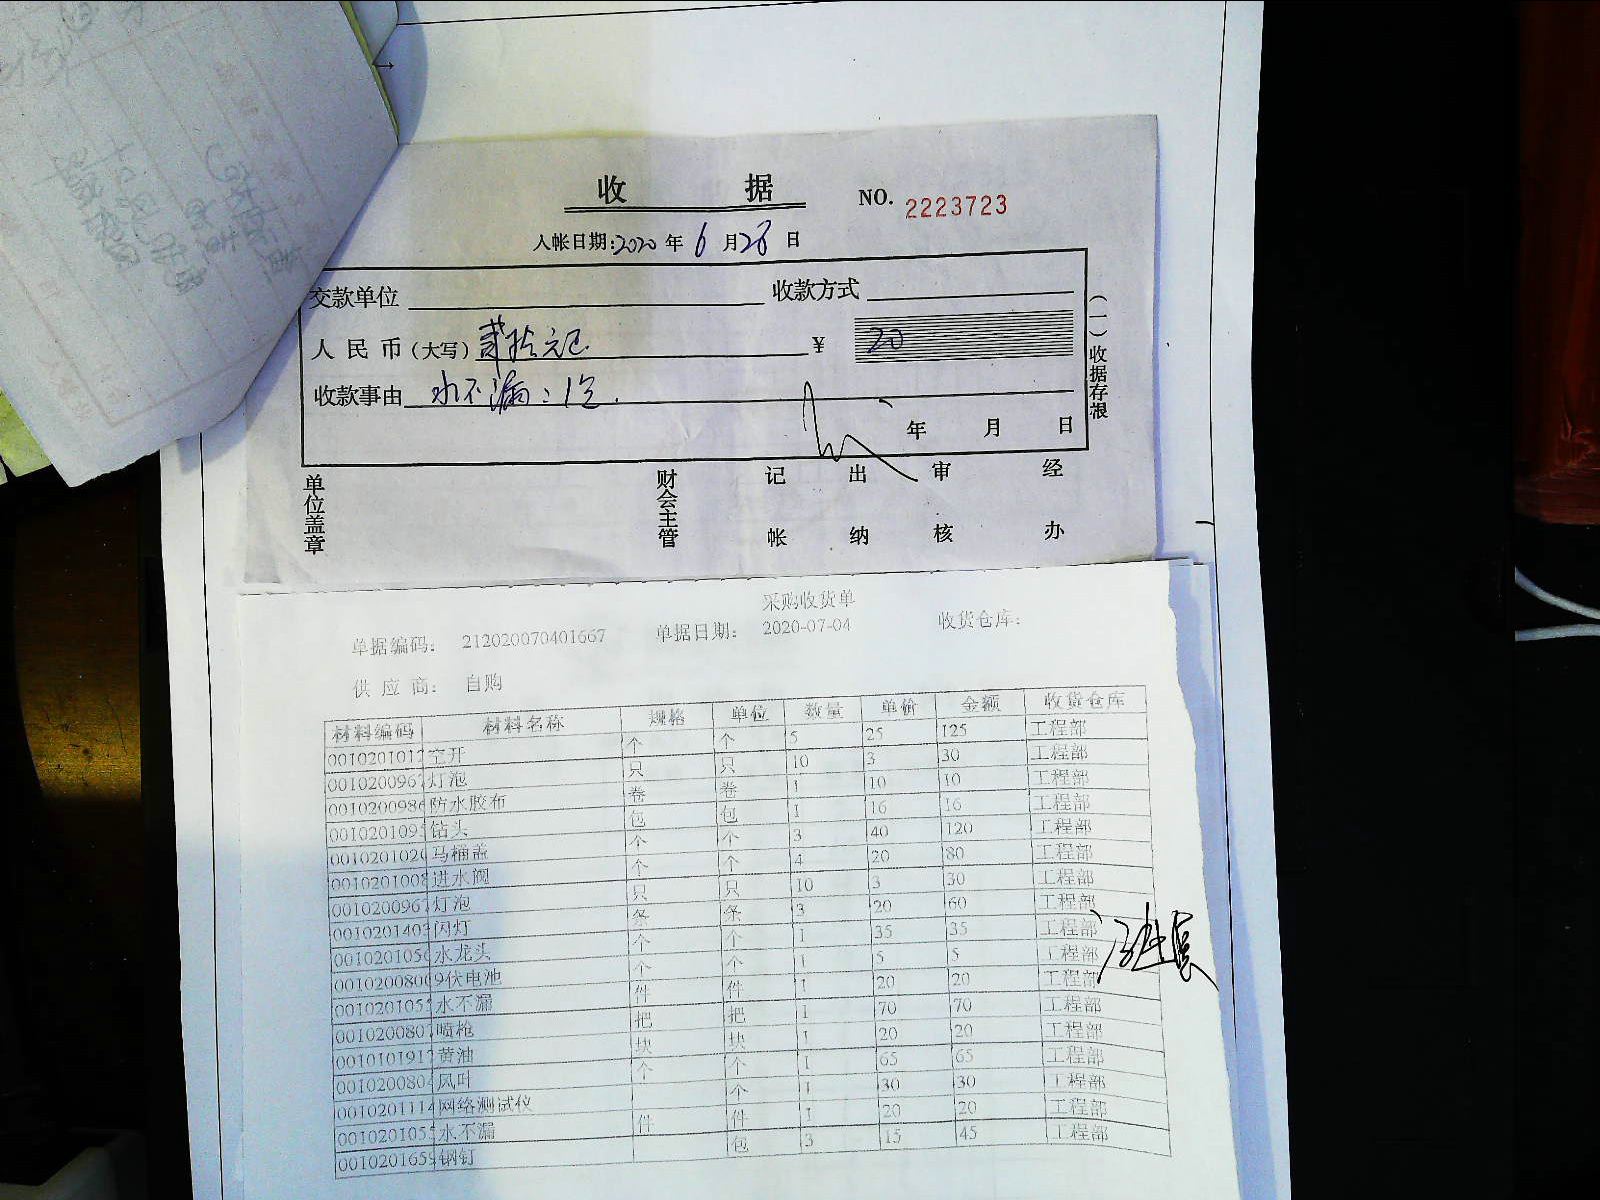 收 据
NO. 2223723
入帐日期:2020 年 6 月 28 日
交款单位 收款方式
人民币(大写) 贰拾元正 ¥ 20
收款事由 水不漏:1包.
年 月 日
(一)收据存根
单位盖章 财会主管 记帐 出纳 审核 经办
采购收货单
单据编码: 212020070401667 单据日期: 2020-07-04 收货仓库:
供应商: 自购
材料编码 材料名称 规格 单位 数量 单价 金额 收货仓库
001020101 空开 个 个 5 25 125 工程部
001020096 灯泡 只 只 10 3 30 工程部
001020098 防水胶布 卷 卷 1 10 10 工程部
001020109 钻头 包 包 1 16 16 工程部
001020102 马桶盖 个 个 3 40 120 工程部
001020100 进水阀 个 个 4 20 80 工程部
001020096 灯泡 只 只 10 3 30 工程部
001020140 闪灯 条 条 3 20 60 工程部
001020105 水龙头 个 个 1 35 35 工程部
001020080 9伏电池 个 个 1 5 5 工程部
001020105 水不漏 件 件 1 20 20 工程部
001020080 喷枪 把 把 1 70 70 工程部
001010191 黄油 块 块 1 20 20 工程部
001020080 风叶 个 个 1 65 65 工程部
001020111 网络测试仪 个 1 30 30 工程部
001020105 水不漏 件 件 1 20 20 工程部
001020165 钢钉 包 3 15 45 工程部